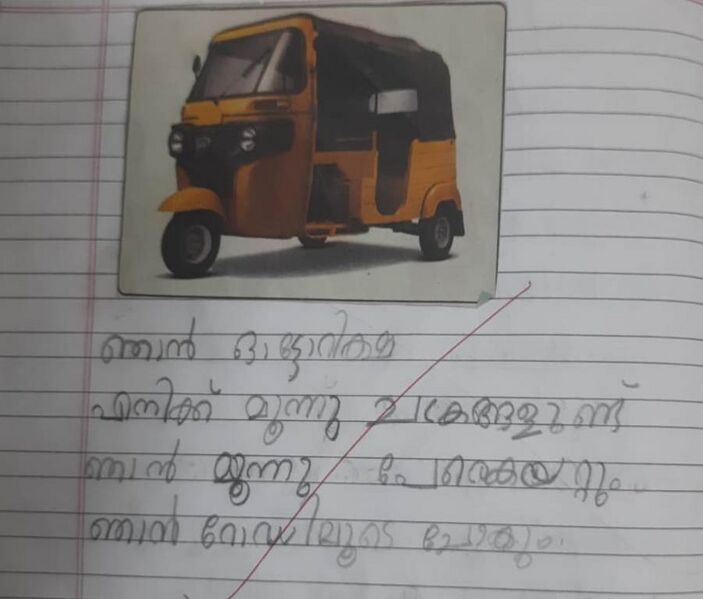 ഞാൻ ഓട്ടോറികഷ
എനിക്ക് മൂന്നു ചക്രങ്ങളുണ്ട്
ഞാൻ മൂന്നു പേരെകയറ്റും
ഞാൻ റോഡിലൂടെ പോകും.